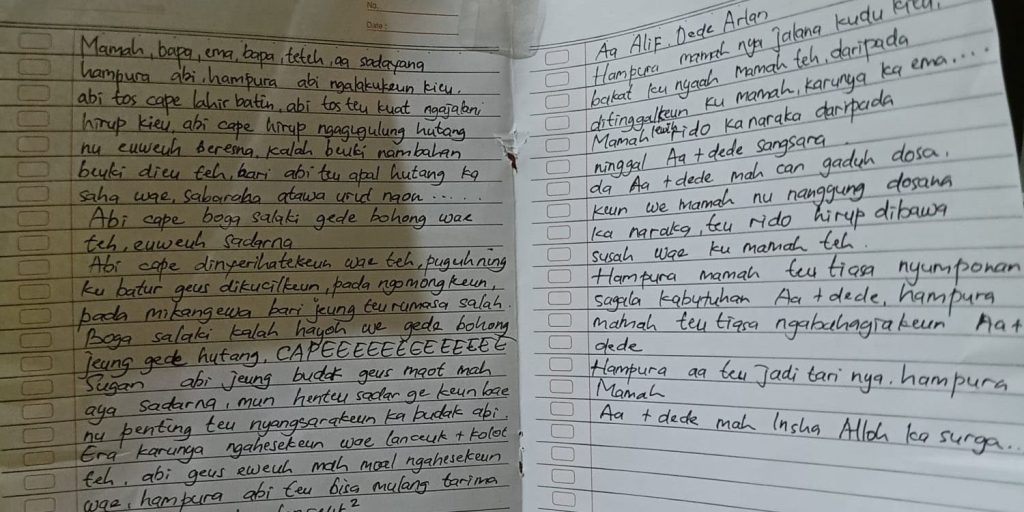 No.
Date :
Mamah, bapa, ema, bapa, teteh, aa sadayana
hampura abi, hampura abi ngalakukeun kieu.
abi tos cape lahir batin, abi tos teu kuat ngajalani
hirup kieu, abi cape hirup ngagugulung hutang
nu euweuh beresna, kalah beuki nambahan
beuki dieu teh, bari abi teu apal hutang ka
saha wae, sabaraha atawa urut naon.....
Abi cape boga salaki gede bohong wae
teh, euweuh sadarna
Abi cape dinyerihatekeun wae teh, puguhning
ku batur geus dikucilkeun, pada ngomongkeun,
pada mikangewa bari jeung teu rumasa salah.
Boga salaki kalah hayoh we gede bohong
jeung gede hutang, CAPEEEEEEEEEEEEE
Sugan abi jeung budak geus maot mah
aya sadarna, mun henteu sadar ge keun bae
nu penting teu nyangsarakeun ka budak abi.
Era karunya ngahesekeun wae lanceuk + kolot
teh, abi geus eweuh mah moal ngahesekeun
wae, hampura abi teu bisa mulang tarima
Aa Alif, Dede Arlan
Hampura mamah nya jalana kudu kieu,
bakat ku nyaah mamah teh, daripada
ditinggalkeun ku mamah, karunya ka ema....
Mamah leuih rido ka naraka daripada
ninggal Aa + dede sangsara
da Aa + dede mah can gaduh dosa.
keun we mamah nu nanggung dosana
ka naraka, teu rido hirup dibawa
susah wae ku mamah teh.
Hampura mamah teu tiasa nyumponan
sagala kabutuhan Aa + dede, hampura
mamah teu tiasa ngabahagiakeun Aa +
dede
Hampura aa teu jadi tari nya. hampura
Mamah
Aa + dede mah Insha Alloh ka surga...